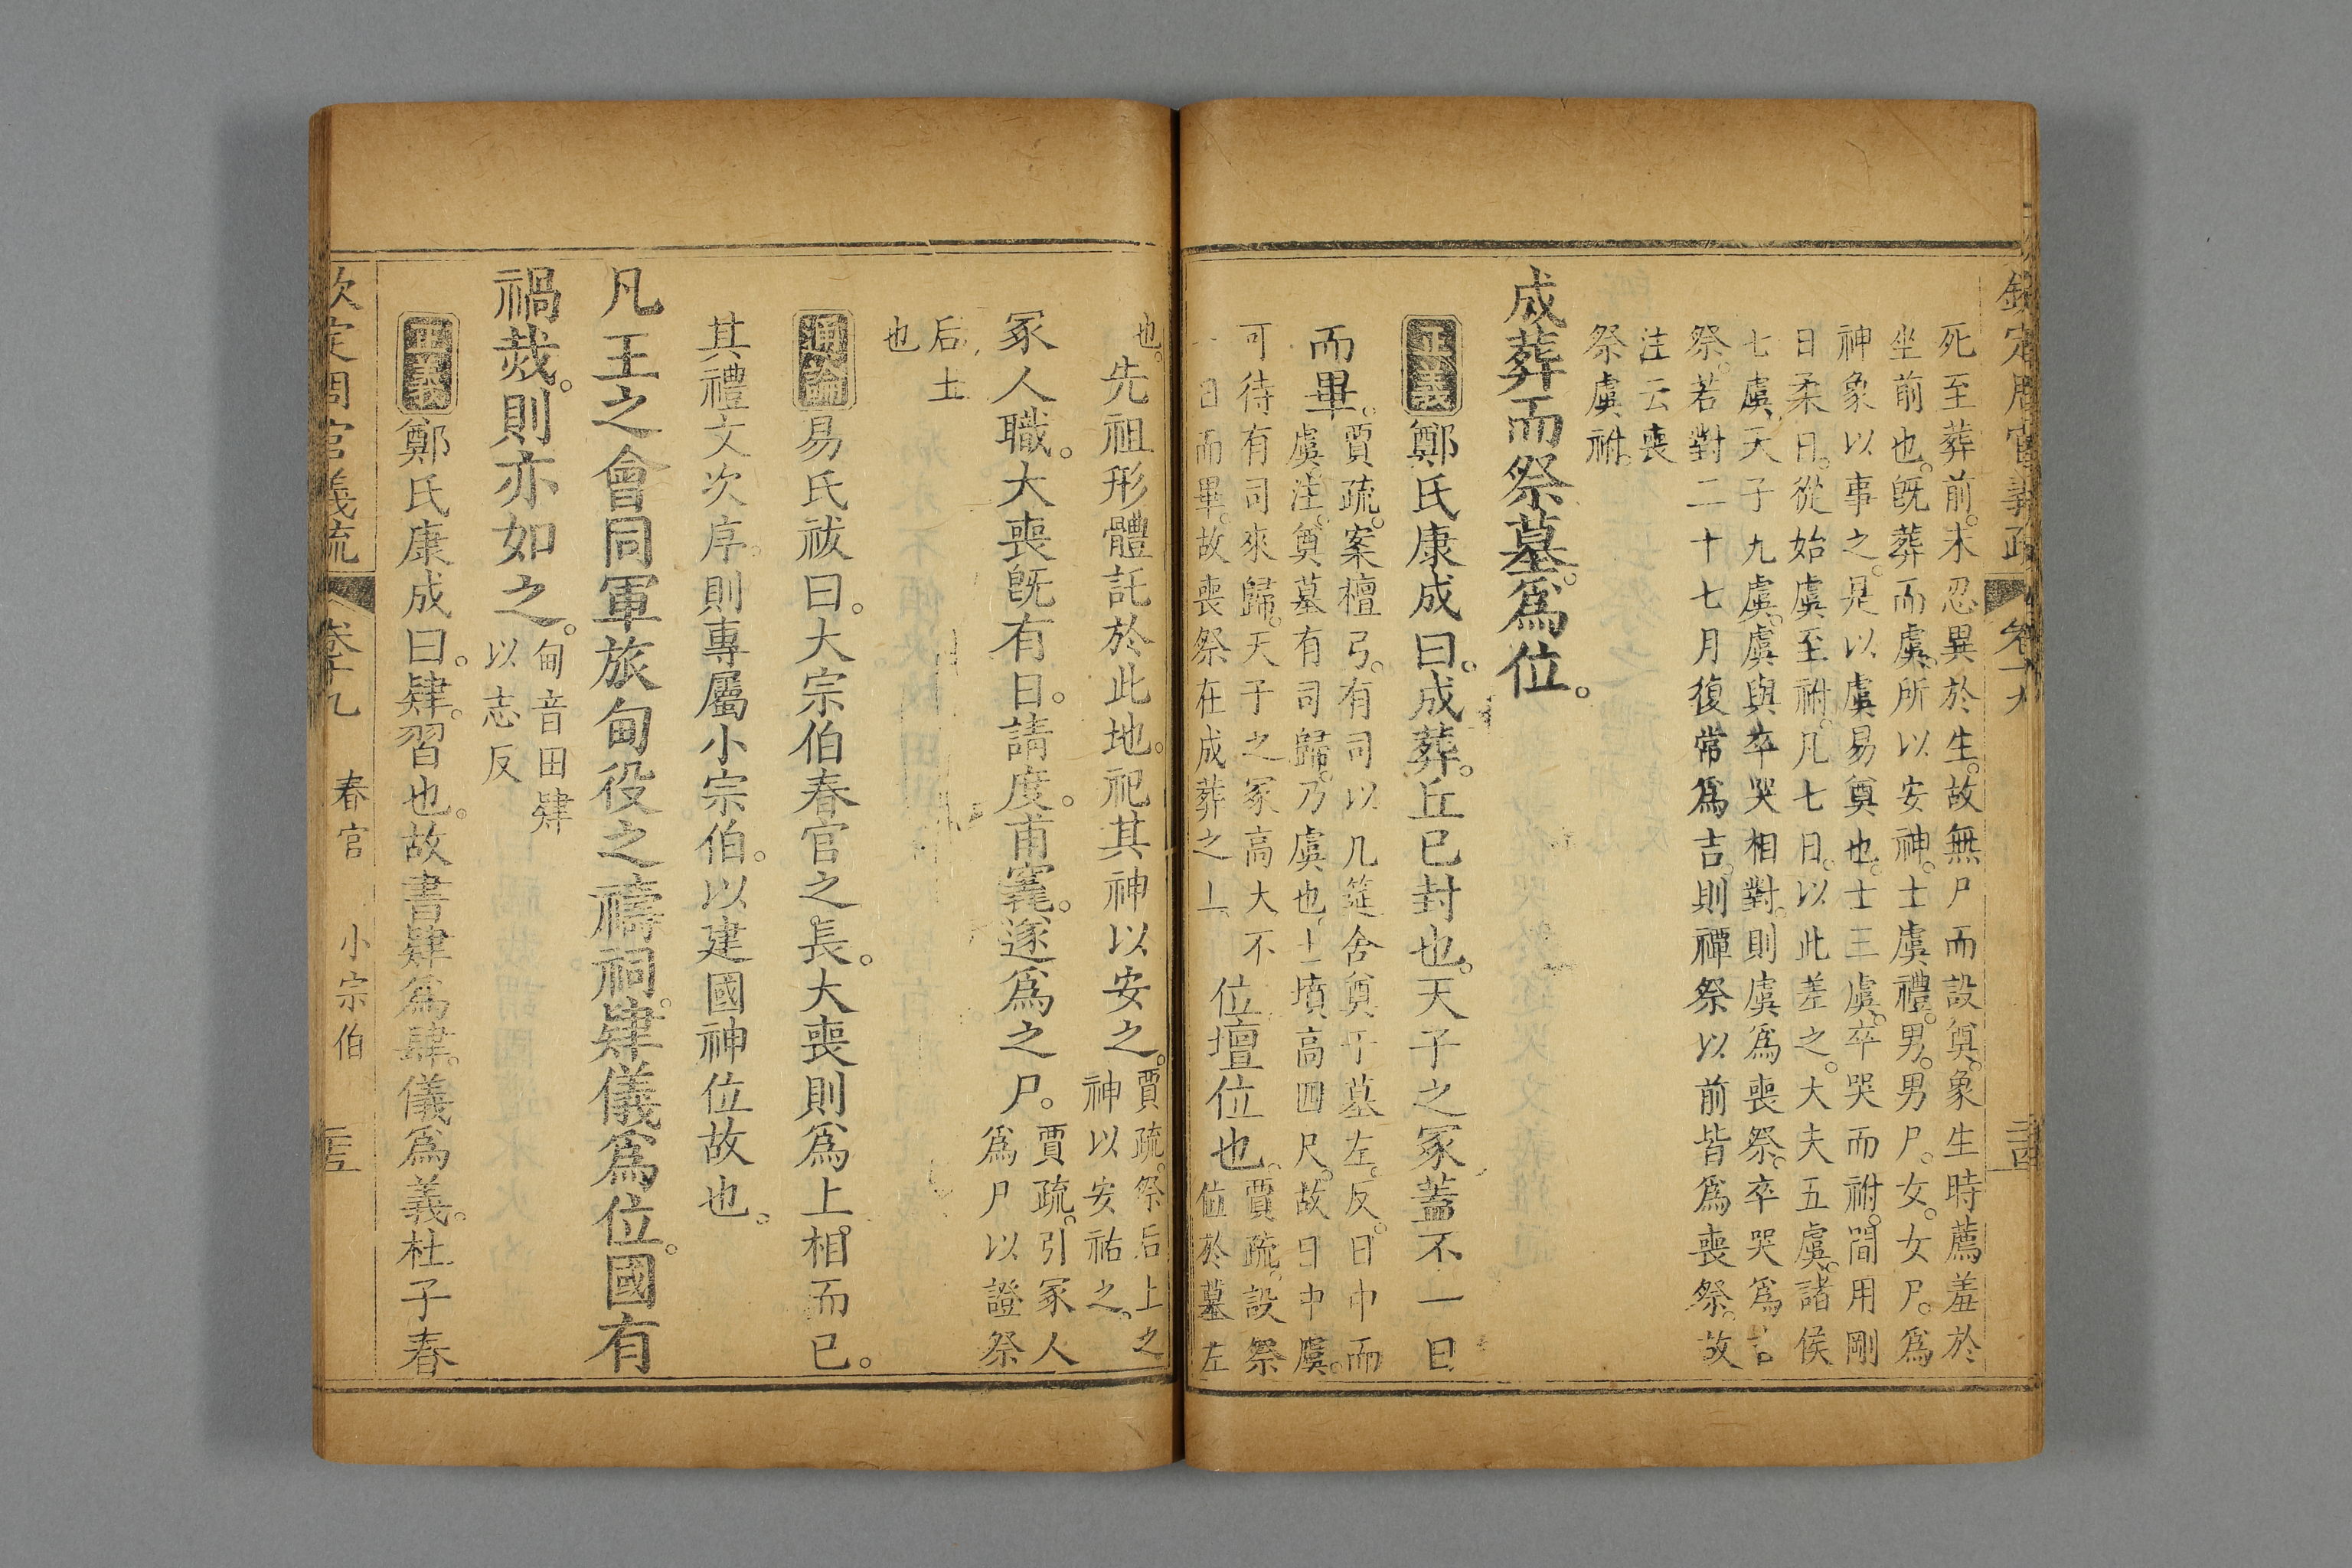 欽定周官義疏 卷十九
死至葬前。未忍異於生。故無尸而設奠。象生時薦羞於
坐前也。旣葬而虞。所以安神。士虞禮。男。男尸。女。女尸。爲
神象以事之。是以虞易奠也。士三虞。卒哭而祔。間用剛
日柔日。從始虞至祔。凡七日。以此差之。大夫五虞。諸侯
七虞。天子九虞。虞與卒哭相對。則虞爲喪祭。卒哭爲吉
祭。若對二十七月復常爲吉。則禫祭以前皆爲喪祭。故
注云喪
祭虞祔。
成葬而祭墓。爲位。
正義鄭氏康成曰。成葬。丘已封也。天子之冢。蓋不一日
而畢。賈疏。案檀弓。有司以几筵舍奠于墓左。反。日中而
虞。注。奠墓有司歸。乃虞也。士墳高四尺。故日中虞。
可待有司來歸。天子之冢高大。不
一日而畢。故喪祭在成葬之上。
位。壇位也。賈疏。設祭
位於墓左
也。先祖形體託於此地。祀其神以安之。賈疏。祭后土之
神以安祐之。
冢人職。大喪旣有日。請度。甫竁。遂爲之尸。賈疏。引冢人
爲尸以證祭
后土
也
總論易氏祓曰。大宗伯春官之長。大喪則爲上相而已。
其禮文次序。則專屬小宗伯。以建國神位故也。
凡王之會同軍旅甸役之禱祠。肄儀爲位。國有
禍烖。則亦如之。甸音田肄
以志反
正義鄭氏康成曰。肄。習也。故書肄爲肆。儀爲義。杜子春
欽定周官義疏 卷十九 春官 小宗伯